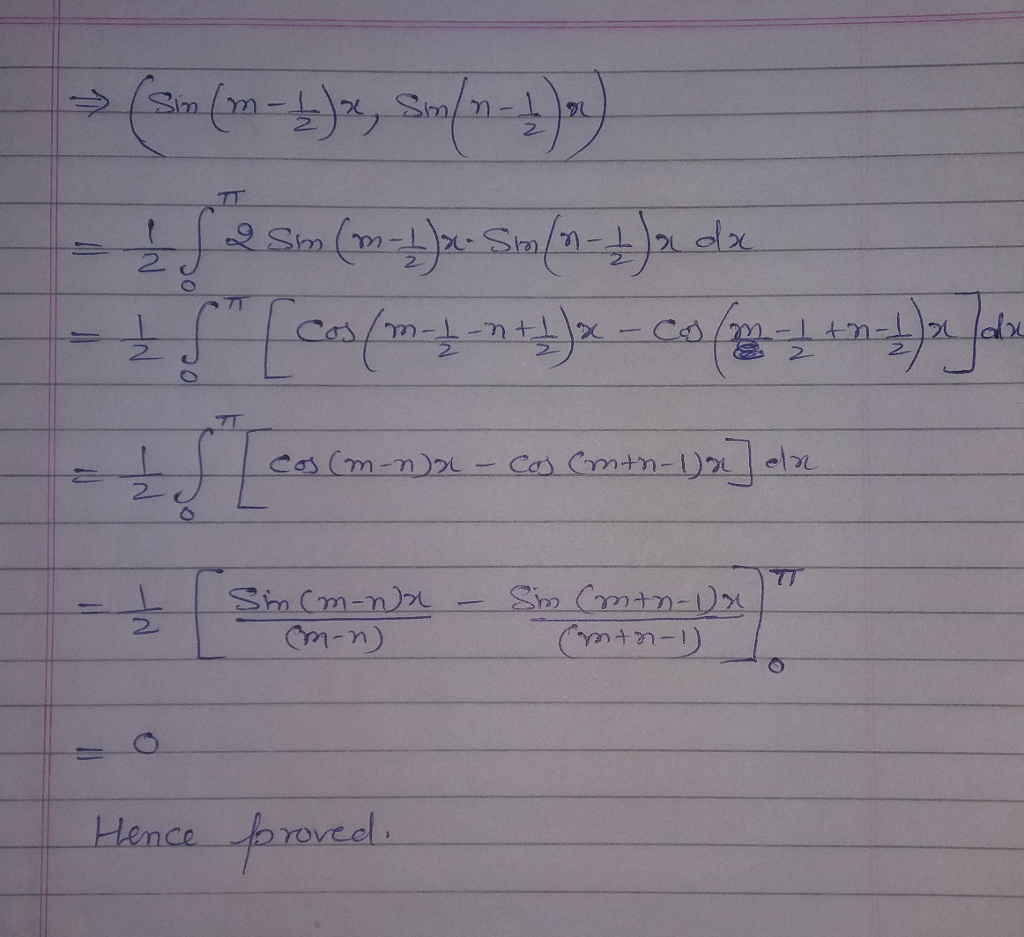 ⇒ (Sin (m - 1/2)x, Sin(n - 1/2)x)
= 1/2 ∫₀^π 2 Sin (m - 1/2)x · Sin (n - 1/2)x dx
= 1/2 ∫₀^π [Cos (m - 1/2 - n + 1/2)x - Cos (m - 1/2 + n - 1/2)x]dx
= 1/2 ∫₀^π [Cos (m-n)x - Cos (m+n-1)x] dx
= 1/2 [Sin (m-n)x/(m-n) - Sin (m+n-1)x/(m+n-1)]₀^π
= 0
Hence proved.